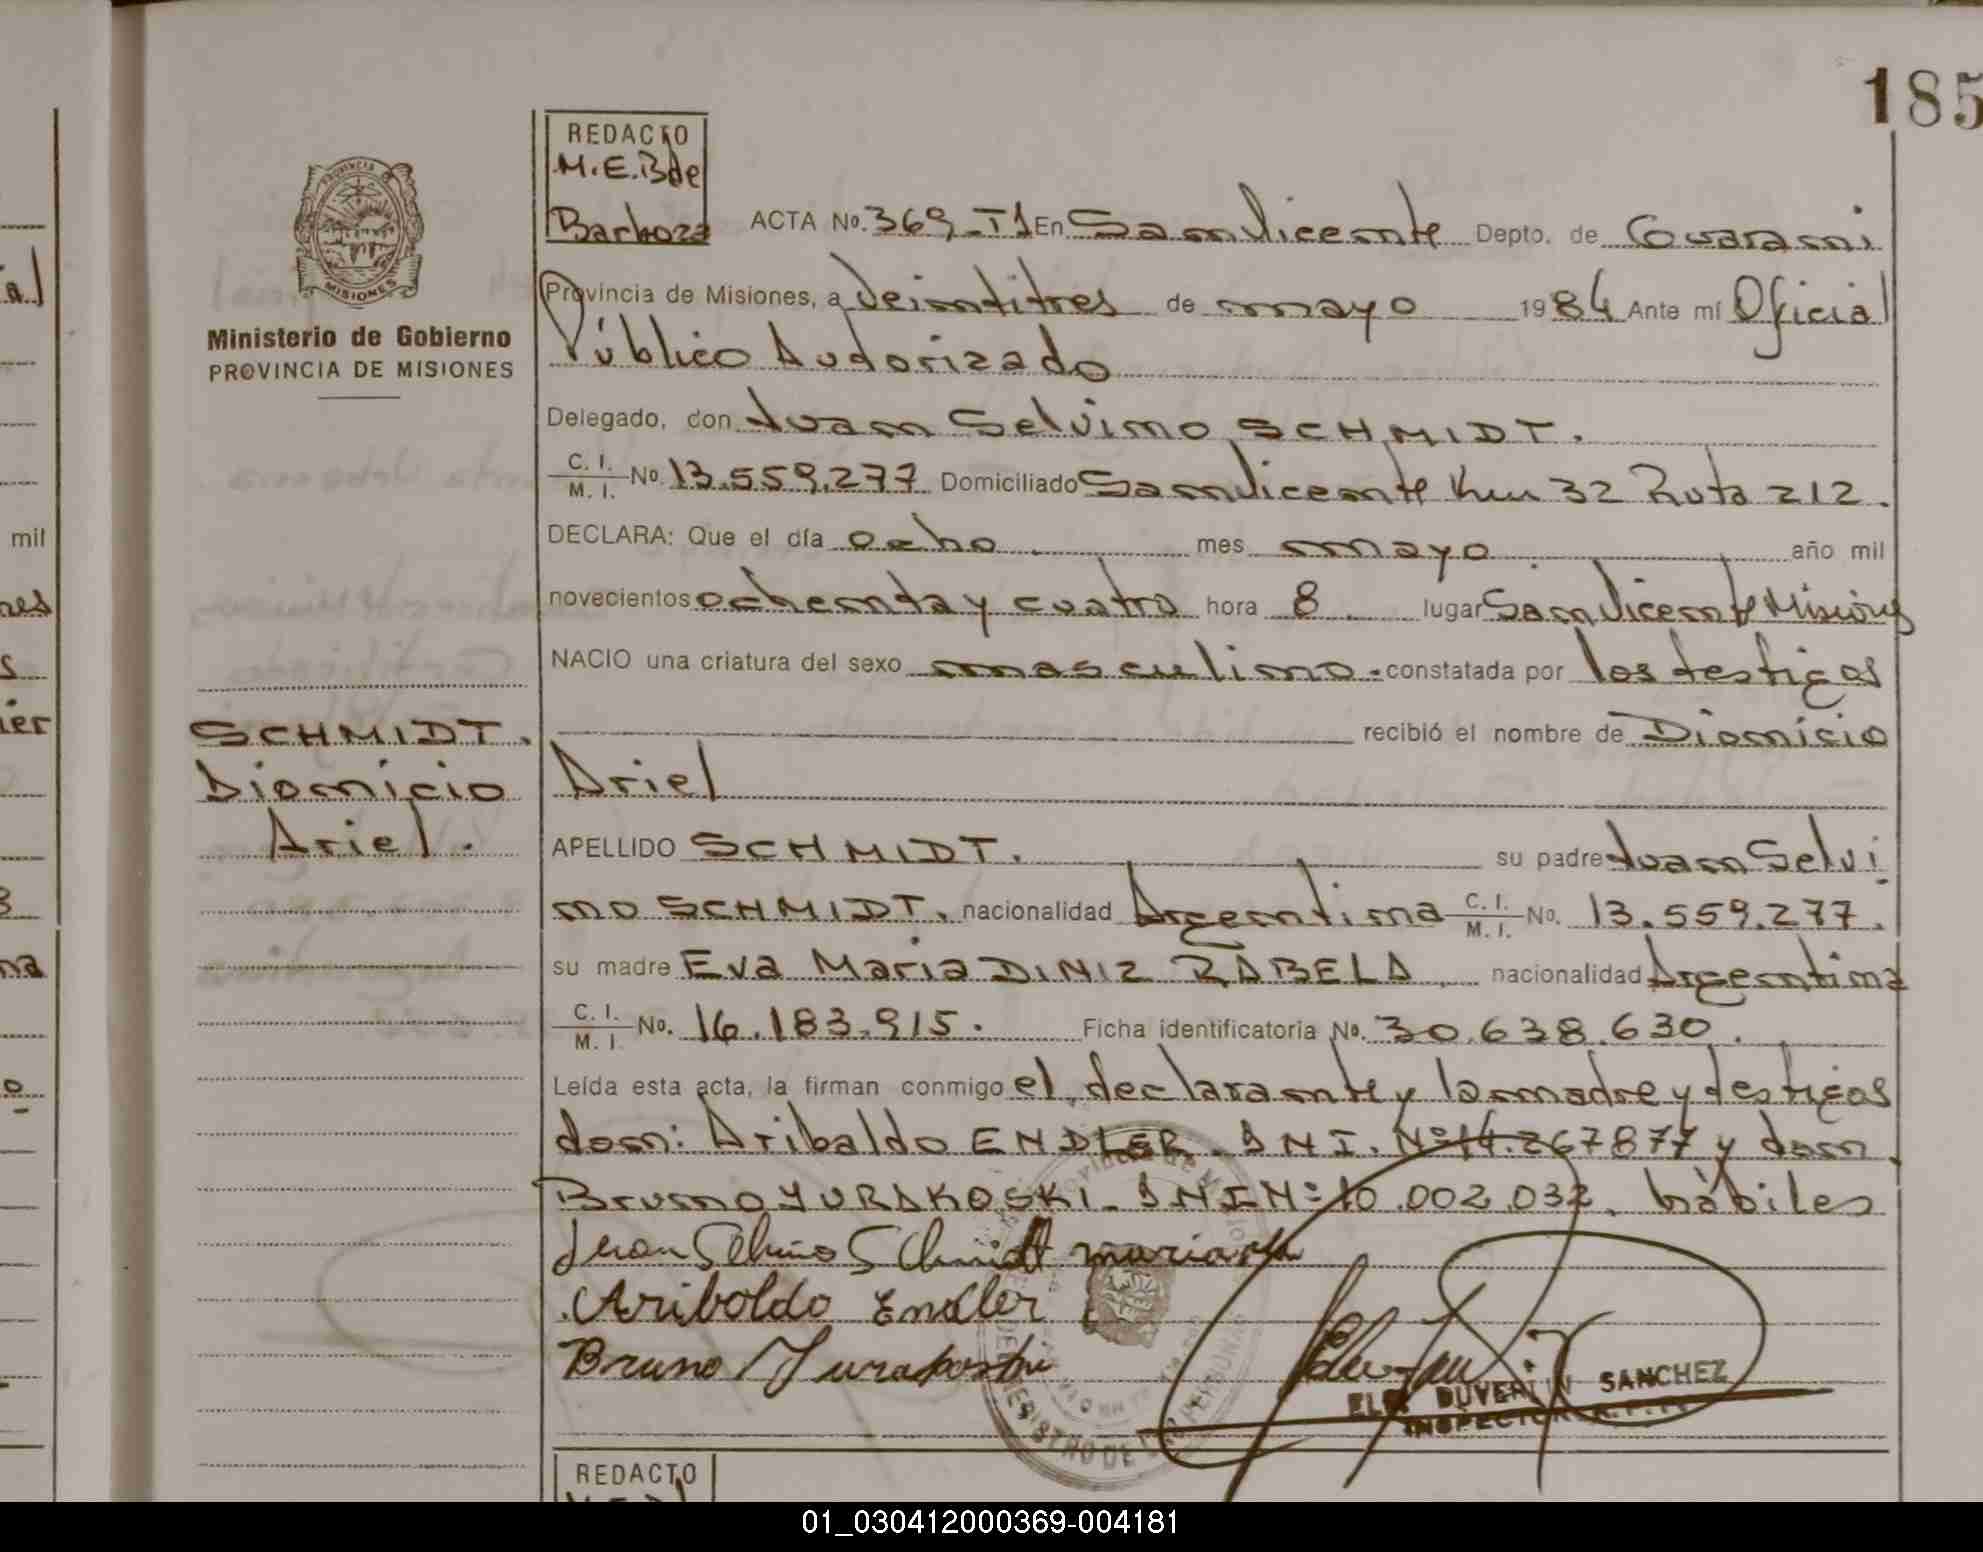 185
REDACTO
M.E.B de
Barboza
PROVINCIA
MISIONES
Ministerio de Gobierno
PROVINCIA DE MISIONES
ACTA No. 369-T1 En San Vicente Depto. de Guarani
Provincia de Misiones, a Veintitres de mayo 1984 Ante mí Oficial
Público Autorizado
Delegado, don Juan Selvino SCHMIDT.
C. I. M. I. No. 13.559.277 Domiciliado San Vicente Km 32 Ruta 212.
DECLARA: Que el día ocho mes mayo año mil
novecientos ochenta y cuatro hora 8 lugar San Vicente Misiones
NACIO una criatura del sexo masculino. constatada por los testigos
recibió el nombre de Dionicio
Ariel
APELLIDO SCHMIDT. su padre Juan Selvi
no SCHMIDT. nacionalidad Argentina C. I. M. I. No. 13.559.277.
su madre Eva Maria DINIZ RABELA nacionalidad Argentina
C. I. M. I. No. 16.183.915. Ficha identificatoria No. 30.638.630.
Leída esta acta, la firman conmigo el declarante y la madre y testigos
don: Aribaldo ENDLER. DNI. Nº 14.267877 y don
Bruno YURAKOSKI. DNI Nº 10.002.032. hàbiles
SCHMIDT.
Dionicio
Ariel.
Juan Selvino Schmidt
Ariboldo Endler
Bruno Yurakoski
SANCHEZ
INSPECTOR
REGISTRO DE LAS PERSONAS
REDACTO
mil
01_030412000369-004181